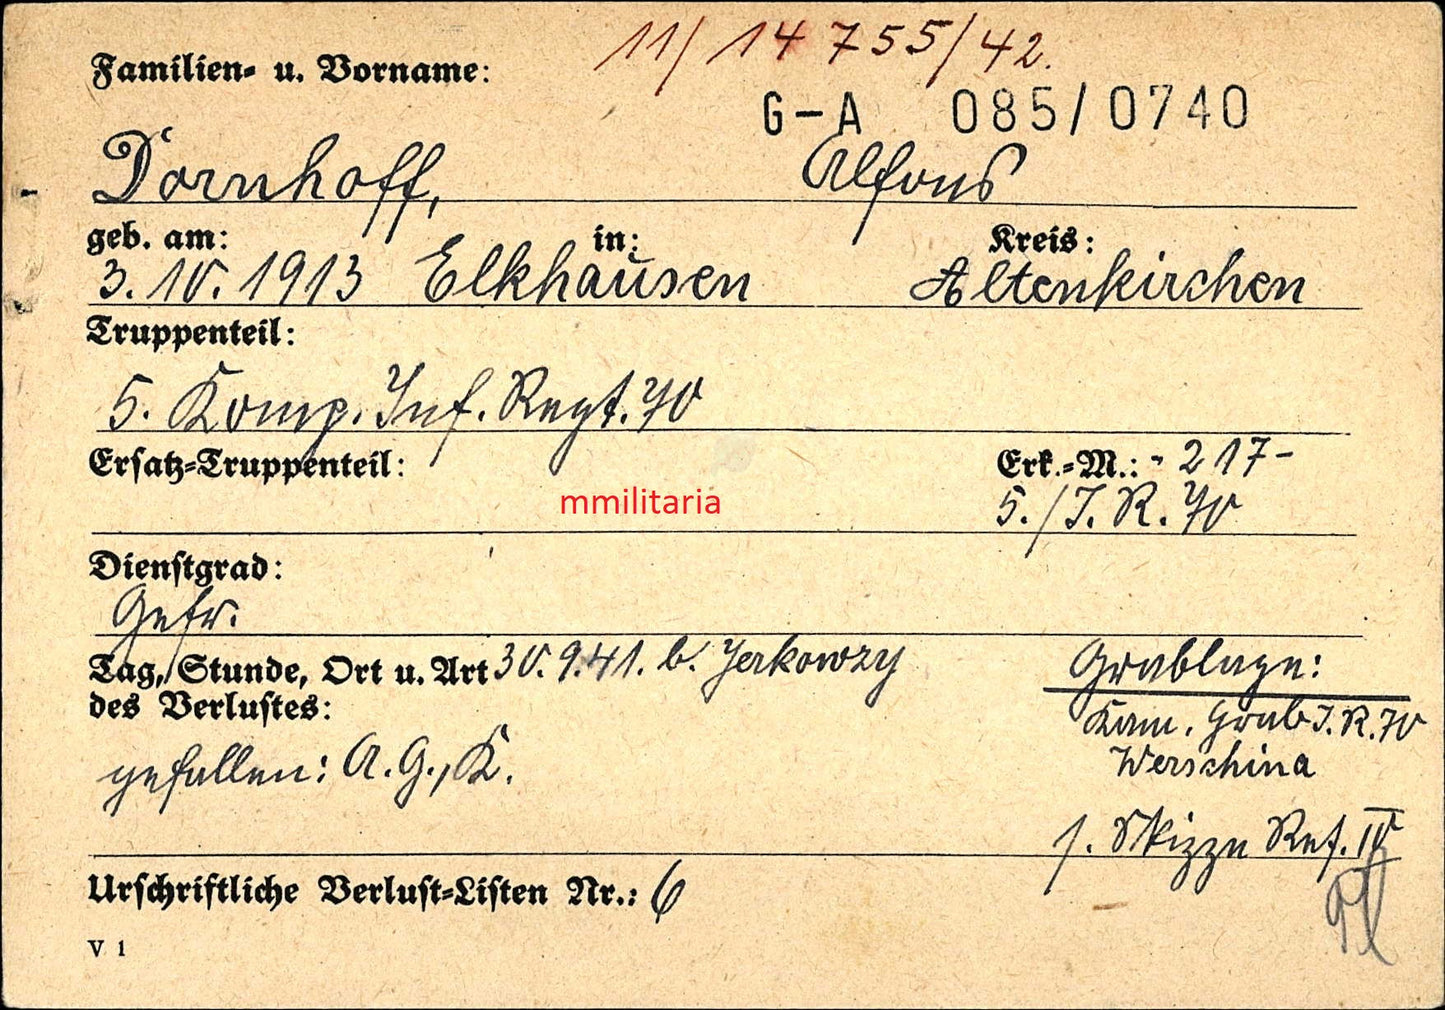 11/14755/42.
Familien- u. Vorname:
G-A 085/0740
Dornhoff, Alfons
geb. am: in: Kreis:
3.10.1913 Elkhausen Altenkirchen
Truppenteil:
5. Komp. Inf. Regt. 70
Ersatz-Truppenteil: Erk.-M.: - 217-
mmilitaria
5./I.R. 70
Dienstgrad:
Gefr.
Tag, Stunde, Ort u. Art 30.9.41. b. Jerkowzy
des Verlustes:
Grablage:
Kam. Grab I.R. 70
Werschina
gefallen: A.G., K.
s. Skizze Ref. IV
Urschriftliche Verlust-Listen Nr.: 6
V 1